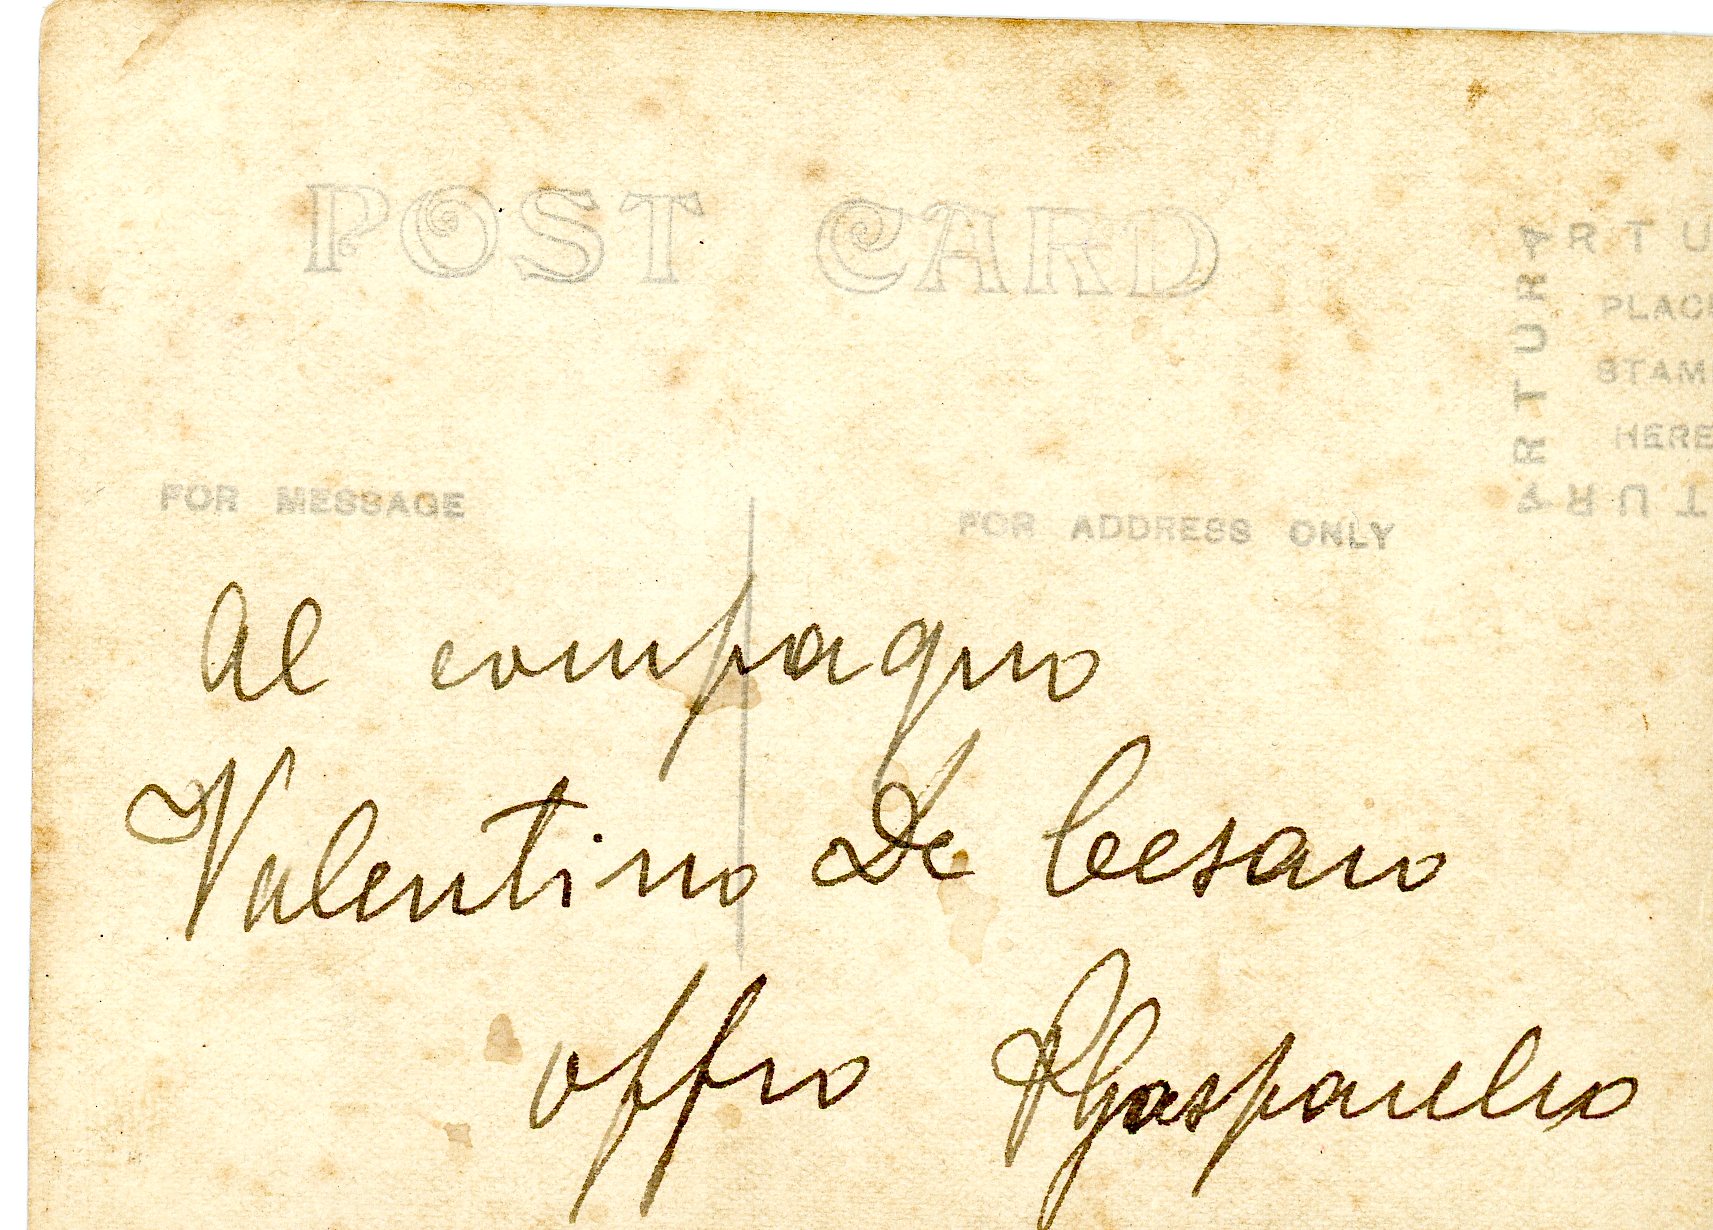 POST CARD
ARTU
ARTURA
PLAC
STAM
HERE
TURA
FOR MESSAGE
FOR ADDRESS ONLY
Al compagno
Valentino De Cesaro
offro